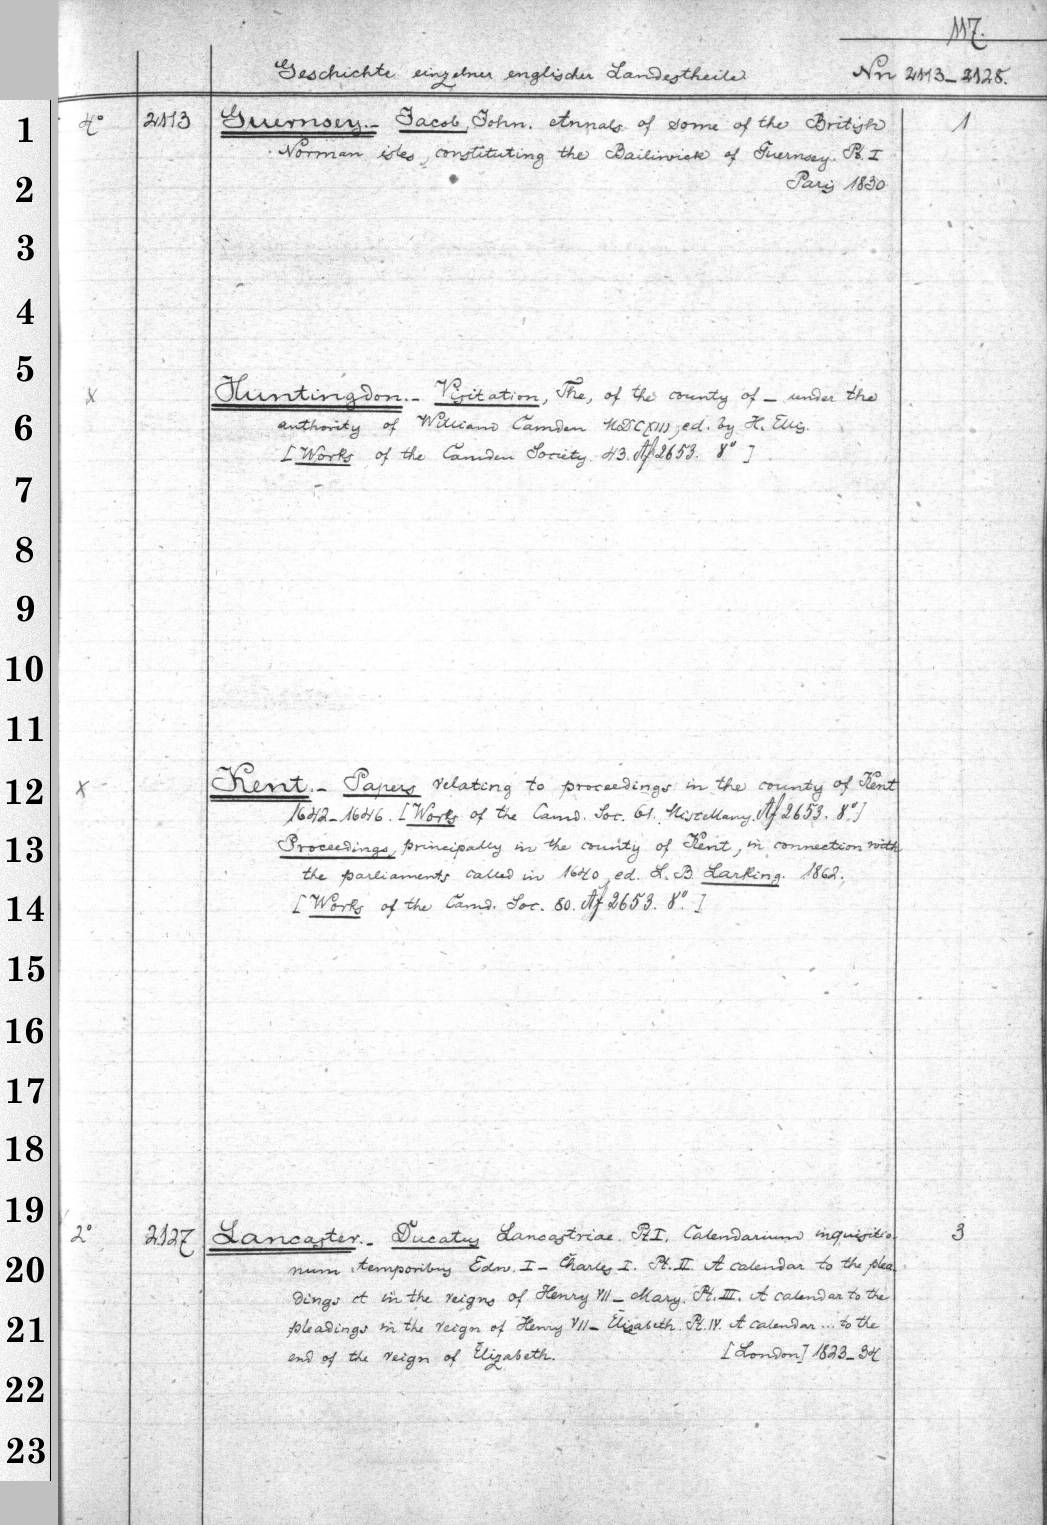 117.
Geschichte einzelner englischer Landestheile Nn 2113–2128.
1 4° 2113 Guernsey.– Jacob, John. Annals of some of the British 1
Norman isles, constituting the Bailiwick of Guernsey. Pt. I
2 Paris 1830
3
4
5
x Huntingdon.– Visitation, The, of the county of – under the
6 authority of William Camden MDCXIII, ed. by H. Ellis.
[Works of the Camden Society. 43. Af 2653. 8°]
7
8
9
10
11
12 x Kent.– Papers relating to proceedings in the county of Kent
1642–1646. [Works of the Camd. Soc. 61. Miscellany. Af 2653. 8°.]
13 Proceedings, principally in the county of Kent, in connection with
the parliaments called in 1640, ed. L. B. Larking. 1862.
14 [Works of the Camd. Soc. 80. Af 2653. 8°.]
15
16
17
18
19
2° 2127 Lancaster.– Ducatus Lancastriae. Pt I. Calendarium inquisitio- 3
20 num temporibus Edw. I – Charles I. Pt. II. A calendar to the plea-
dings ct in the reigns of Henry VII – Mary. Pt. III. A calendar to the
21 pleadings in the reign of Henry VII – Elisabeth. Pt. IV. A calendar ... to the
end of the reign of Elizabeth. [London] 1823–34
22
23